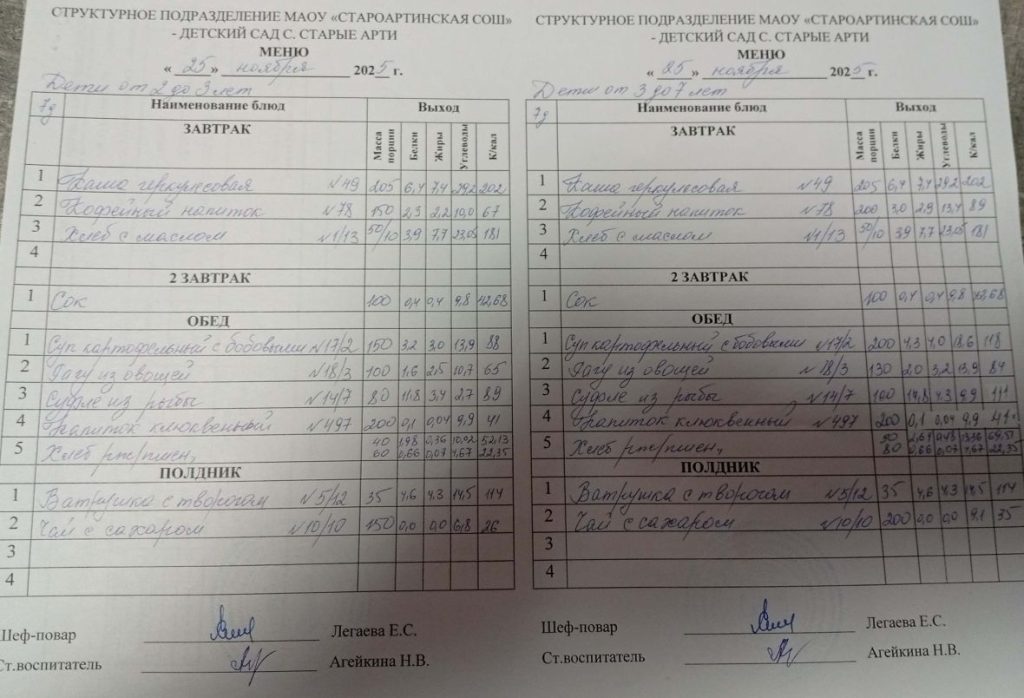 СТРУКТУРНОЕ ПОДРАЗДЕЛЕНИЕ МАОУ «СТАРОАРТИНСКАЯ СОШ»
- ДЕТСКИЙ САД С. СТАРЫЕ АРТИ
МЕНЮ
« 25 » ноября 2025 г.
Дети от 2 до 3 лет
7д Наименование блюд Выход
ЗАВТРАК Масса порции Белки Жиры Углеводы К/кал
1 Каша геркулесовая №49 205 6,4 7,4 29,2 202
2 Кофейный напиток №78 150 2,3 2,2 10,0 67
3 Хлеб с маслом №1/13 50/10 3,9 7,7 23,05 181
4
2 ЗАВТРАК
1 Сок 100 0,4 0,4 9,8 42,68
ОБЕД
1 Суп картофельный с бобовыми №17/2 150 3,2 3,0 13,9 88
2 Рагу из овощей №18/3 100 1,6 2,5 10,7 65
3 Суфле из рыбы №14/7 80 11,8 3,4 2,7 89
4 Напиток клюквенный №497 200 0,1 0,04 9,9 41
5 Хлеб рж/пшен, 40 1,98 0,36 10,92 52,13
60 0,66 0,07 4,67 22,35
ПОЛДНИК
1 Ватрушка с творогом №5/12 35 4,6 4,3 14,5 114
2 Чай с сахаром №10/10 150 0,0 0,0 6,8 26
3
4
Шеф-повар Легаева Е.С.
Ст.воспитатель Агейкина Н.В.
СТРУКТУРНОЕ ПОДРАЗДЕЛЕНИЕ МАОУ «СТАРОАРТИНСКАЯ СОШ»
- ДЕТСКИЙ САД С. СТАРЫЕ АРТИ
МЕНЮ
« 25 » ноября 2025 г.
Дети от 3 до 7 лет
7д Наименование блюд Выход
ЗАВТРАК Масса порции Белки Жиры Углеводы К/кал
1 Каша геркулесовая №49 205 6,4 7,4 29,2 202
2 Кофейный напиток №78 200 3,0 2,9 13,4 89
3 Хлеб с маслом №1/13 50/10 3,9 7,7 23,05 181
4
2 ЗАВТРАК
1 Сок 100 0,4 0,4 9,8 42,68
ОБЕД
1 Суп картофельный с бобовыми №17/2 200 4,3 4,0 18,6 118
2 Рагу из овощей №18/3 130 2,0 3,2 13,9 84
3 Суфле из рыбы №14/7 100 14,8 4,3 111
4 Напиток клюквенный №497 200 0,1 0,04 9,9
5 Хлеб рж/пшен, 50 2,64 0,48
80 0,66 0,07 4,67 22,35
ПОЛДНИК
1 Ватрушка с творогом №5/12 35 4,6 4,3 14,5 114
2 Чай с сахаром №10/10 200 0,0 0,0 9,1 35
3
4
Шеф-повар Легаева Е.С.
Ст.воспитатель Агейкина Н.В.